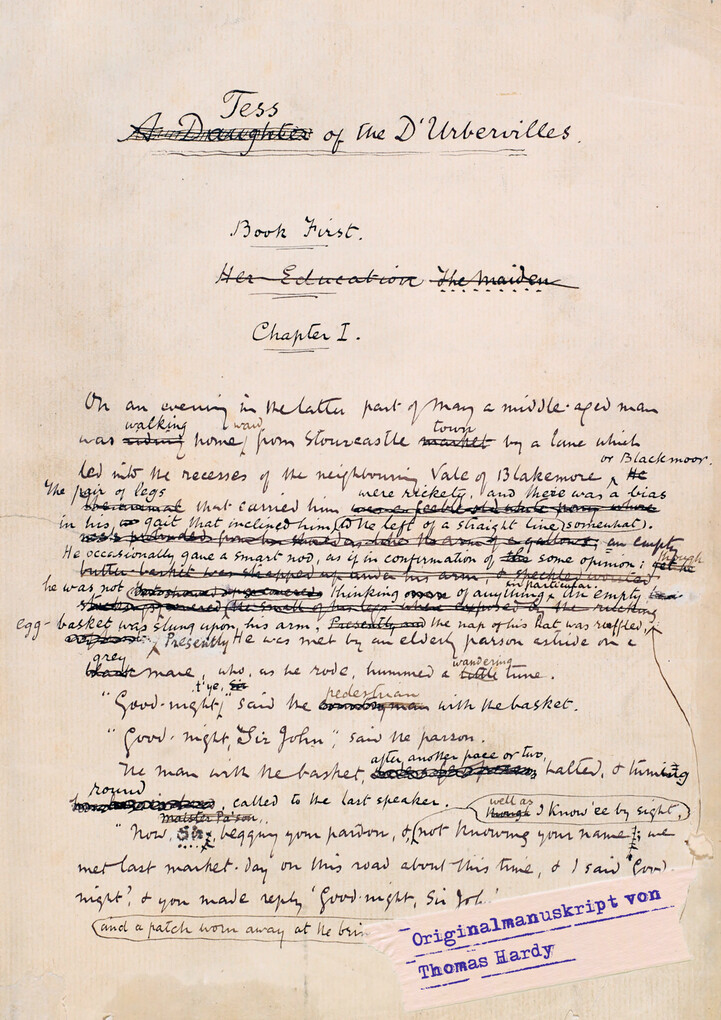 Tess
A Daughter of the D'Urbervilles.
Book First.
Her Education The Maiden
Chapter I.
On an evening in the latter part of May a middle-aged man
walking ward town
was riding home from Stourcastle market by a lane which
or Blackmoor.
led into the recesses of the neighbouring Vale of Blakemore He
The pair of legs were rickety, and there was a bias
the animal that carried him was a feeble old white pony whose
in his gait that inclined him to the left of a straight line somewhat.
an empty
He occasionally gave a smart nod, as if in confirmation of some opinion; though
butter-basket was strapped up under his arm,
he was not thinking of anything in particular. An empty
egg-basket was slung upon his arm, Presently the nap of his hat was ruffled,
Presently He was met by an elderly parson astride on a
grey wandering
black mare, who, as he rode, hummed a little tune.
t'ye, Sir pedestrian
"Good-night," said the countryman with the basket.
"Good-night, Sir John," said the parson.
after another pace or two,
The man with the basket, halted, & turning
round
, called to the last speaker.
well as
maister Pa'son, though I know 'ee by sight,
"Now, Sir, begging your pardon, & not knowing your name; we
met last market-day on this road about this time, & I said 'Good
night', & you made reply 'Good-night, Sir Joh
and a patch worn away at the brim
Originalmanuskript von
Thomas Hardy